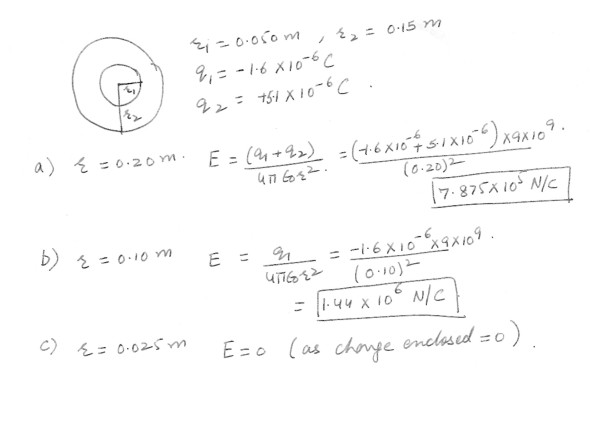 r₁ = 0.050 m , r₂ = 0.15 m
q₁ = -1.6 × 10⁻⁶ C
q₂ = +5.1 × 10⁻⁶ C .
r₁
r₂
a) r = 0.20 m . E = (q₁ + q₂) / 4π ε₀ r² . = (-1.6 × 10⁻⁶ + 5.1 × 10⁻⁶) × 9 × 10⁹ . / (0.20)²
7.875 × 10⁵ N/C
b) r = 0.10 m E = q₁ / 4π ε₀ r² = -1.6 × 10⁻⁶ × 9 × 10⁹ . / (0.10)²
= 1.44 × 10⁶ N/C
c) r = 0.025 m E = 0 (as charge enclosed = 0) .